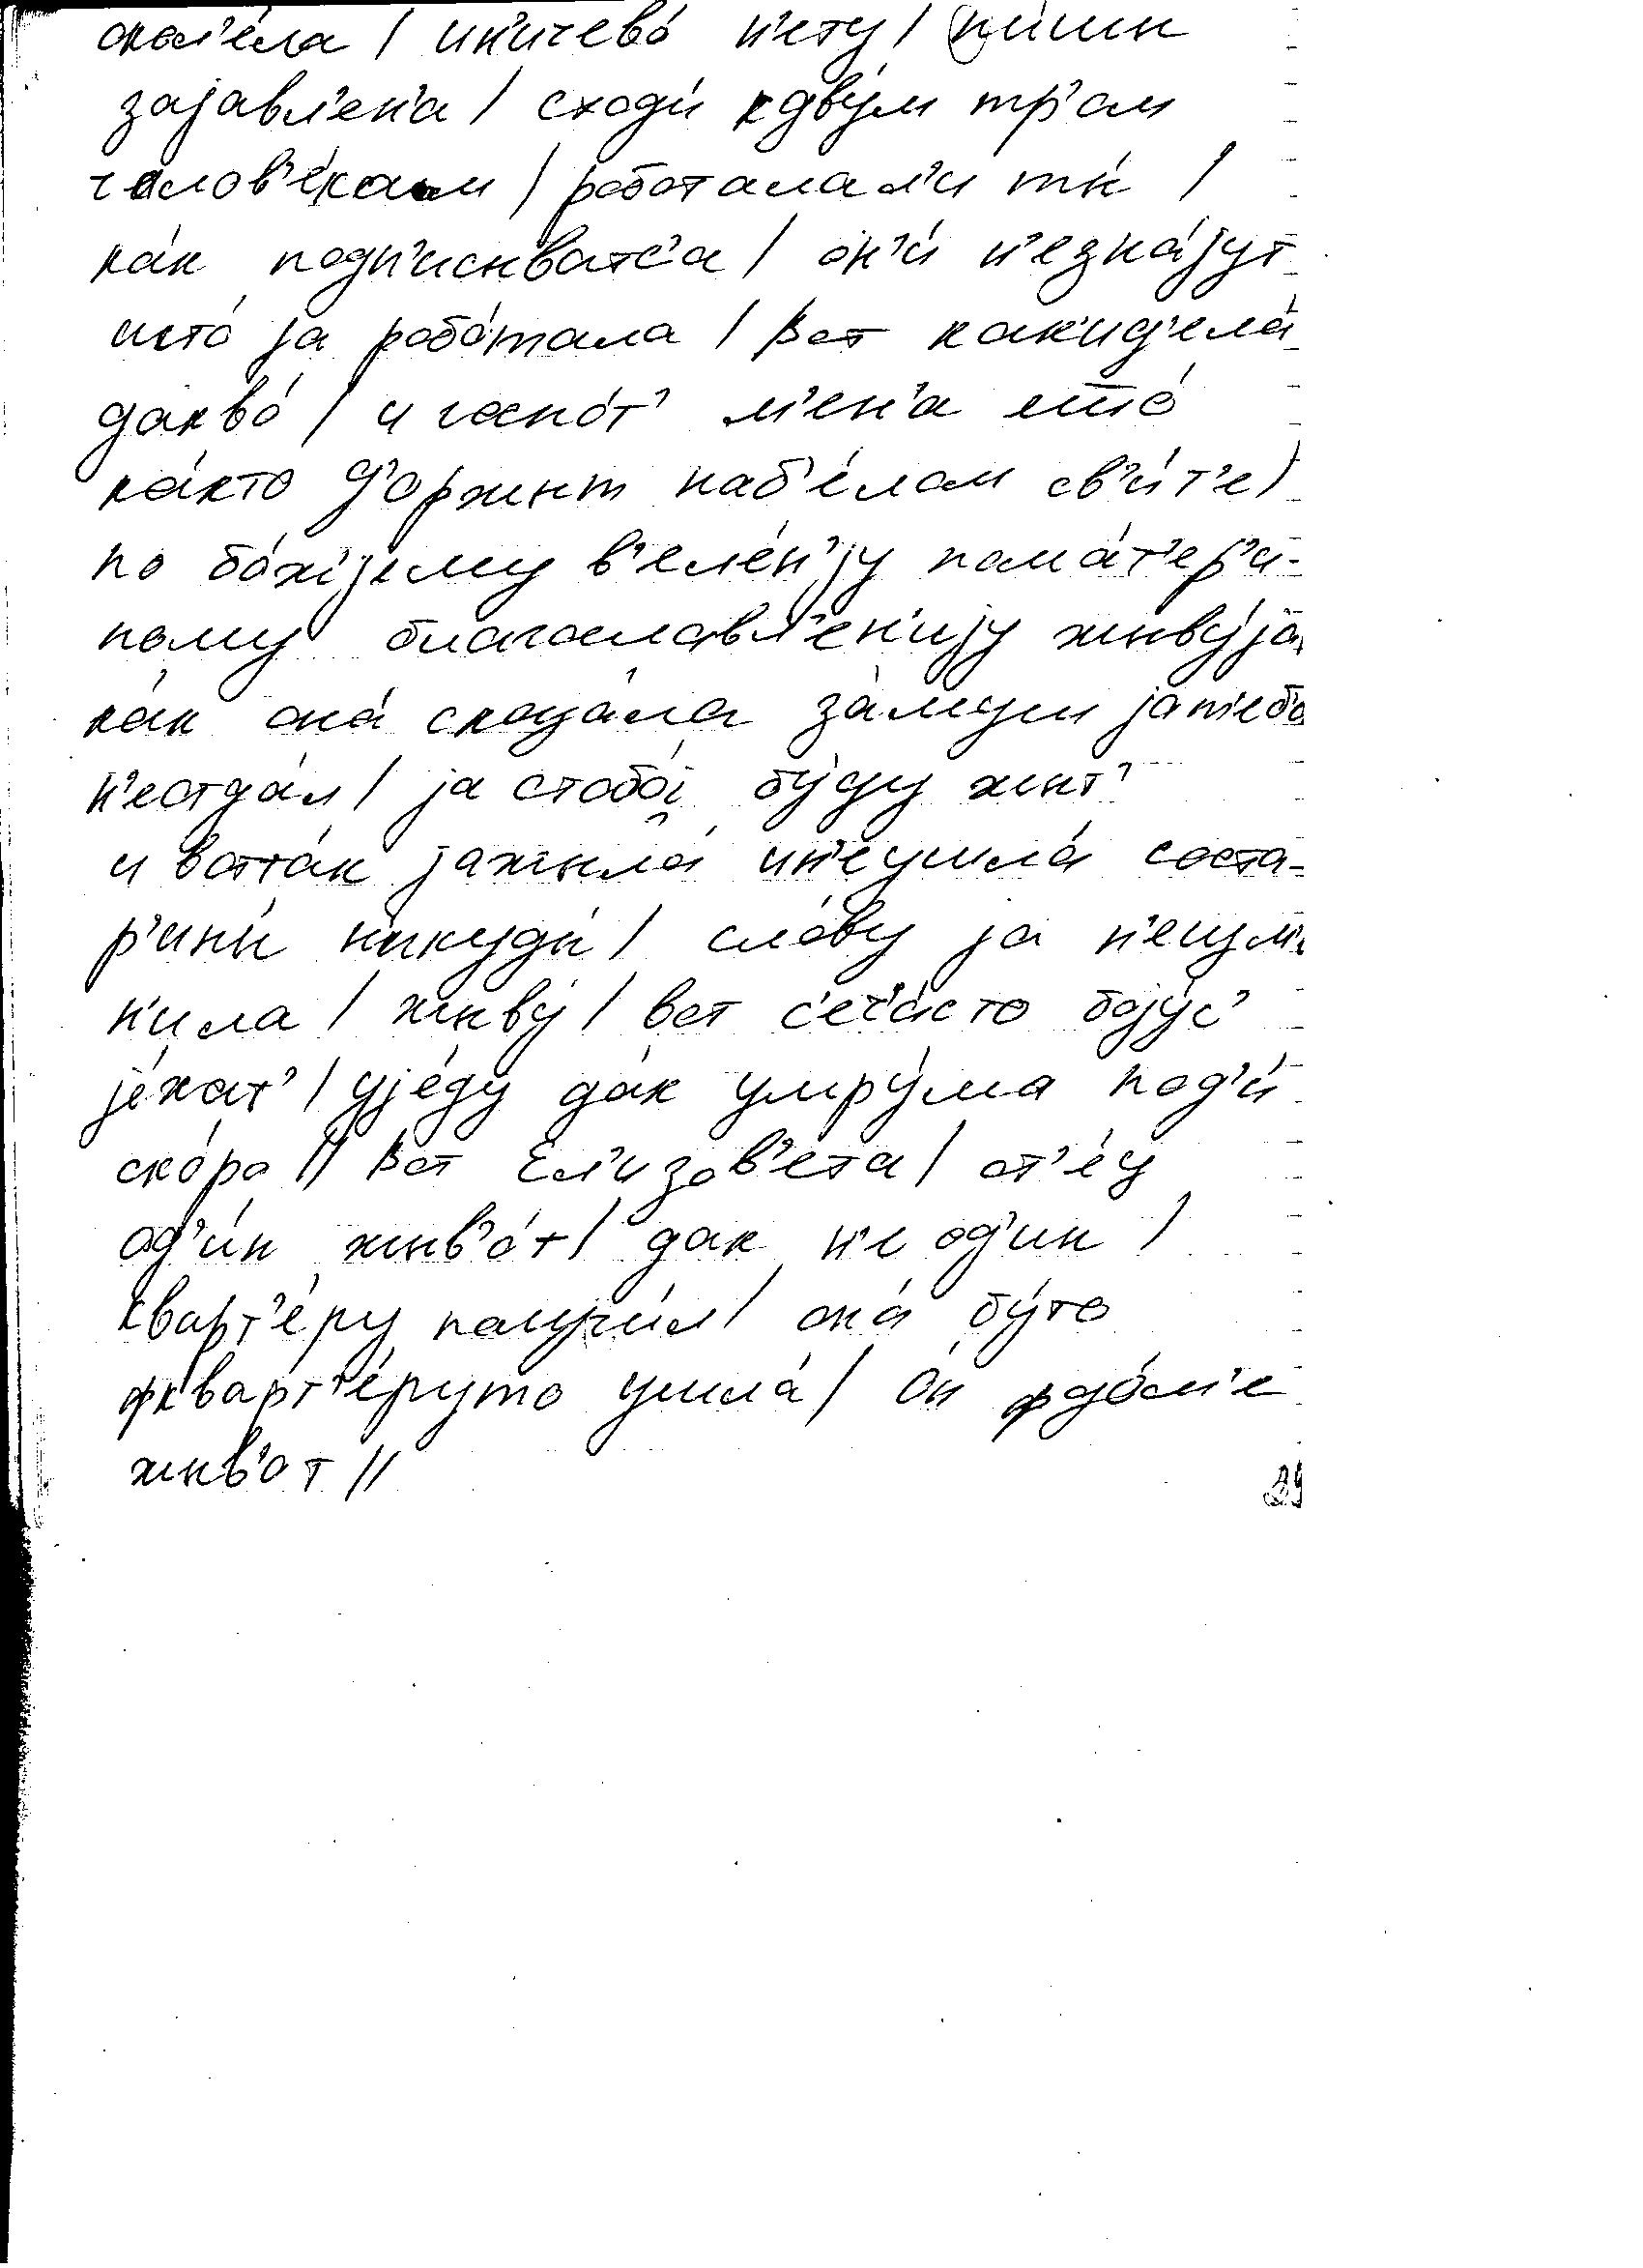 окол'е́ла / ин'ичево́ н'ету / пиши
зајавл'ен'а / сходи́ кдву́м тр'ом
челов'е́кам / роботалал'и ты́ /
ка́к подп'исыватс'а / он'и́ н'езна́јут
што́ ја робо́тала / вот как'ид'ела́
дакво́ / и госпо́т' м'ен'а ешшо́
ка́кто д'оржыт наб'е́лом св'и́т'е /
по бо́жјему в'еле́н'ју пома́т'ер'и-
ному благославл'ен'ију жыву́ја
ка́к она́ сказа́ла за́муш јат'ебо
н'еотда́м / ја стобо́ј бу́ду жыт'
и вотта́к јажыла́ ин'еушла́ соста-
р'ины́ никуды́ / сло́ву ја н'еизм'и
н'ила / жыву́ / вот с'еча́сто бојус'
је́хат' / ује́ду да́к умру́ма под'и́
ско́ро // вот Ел'изав'ета / от'е́ц
од'и́н жыв'о́т / дак н'е од'ин /
кварт'е́ру получи́л / она́ бу́то
фкварт'е́руто ушла́ / о́н фдо́м'е
жыв'от //
39